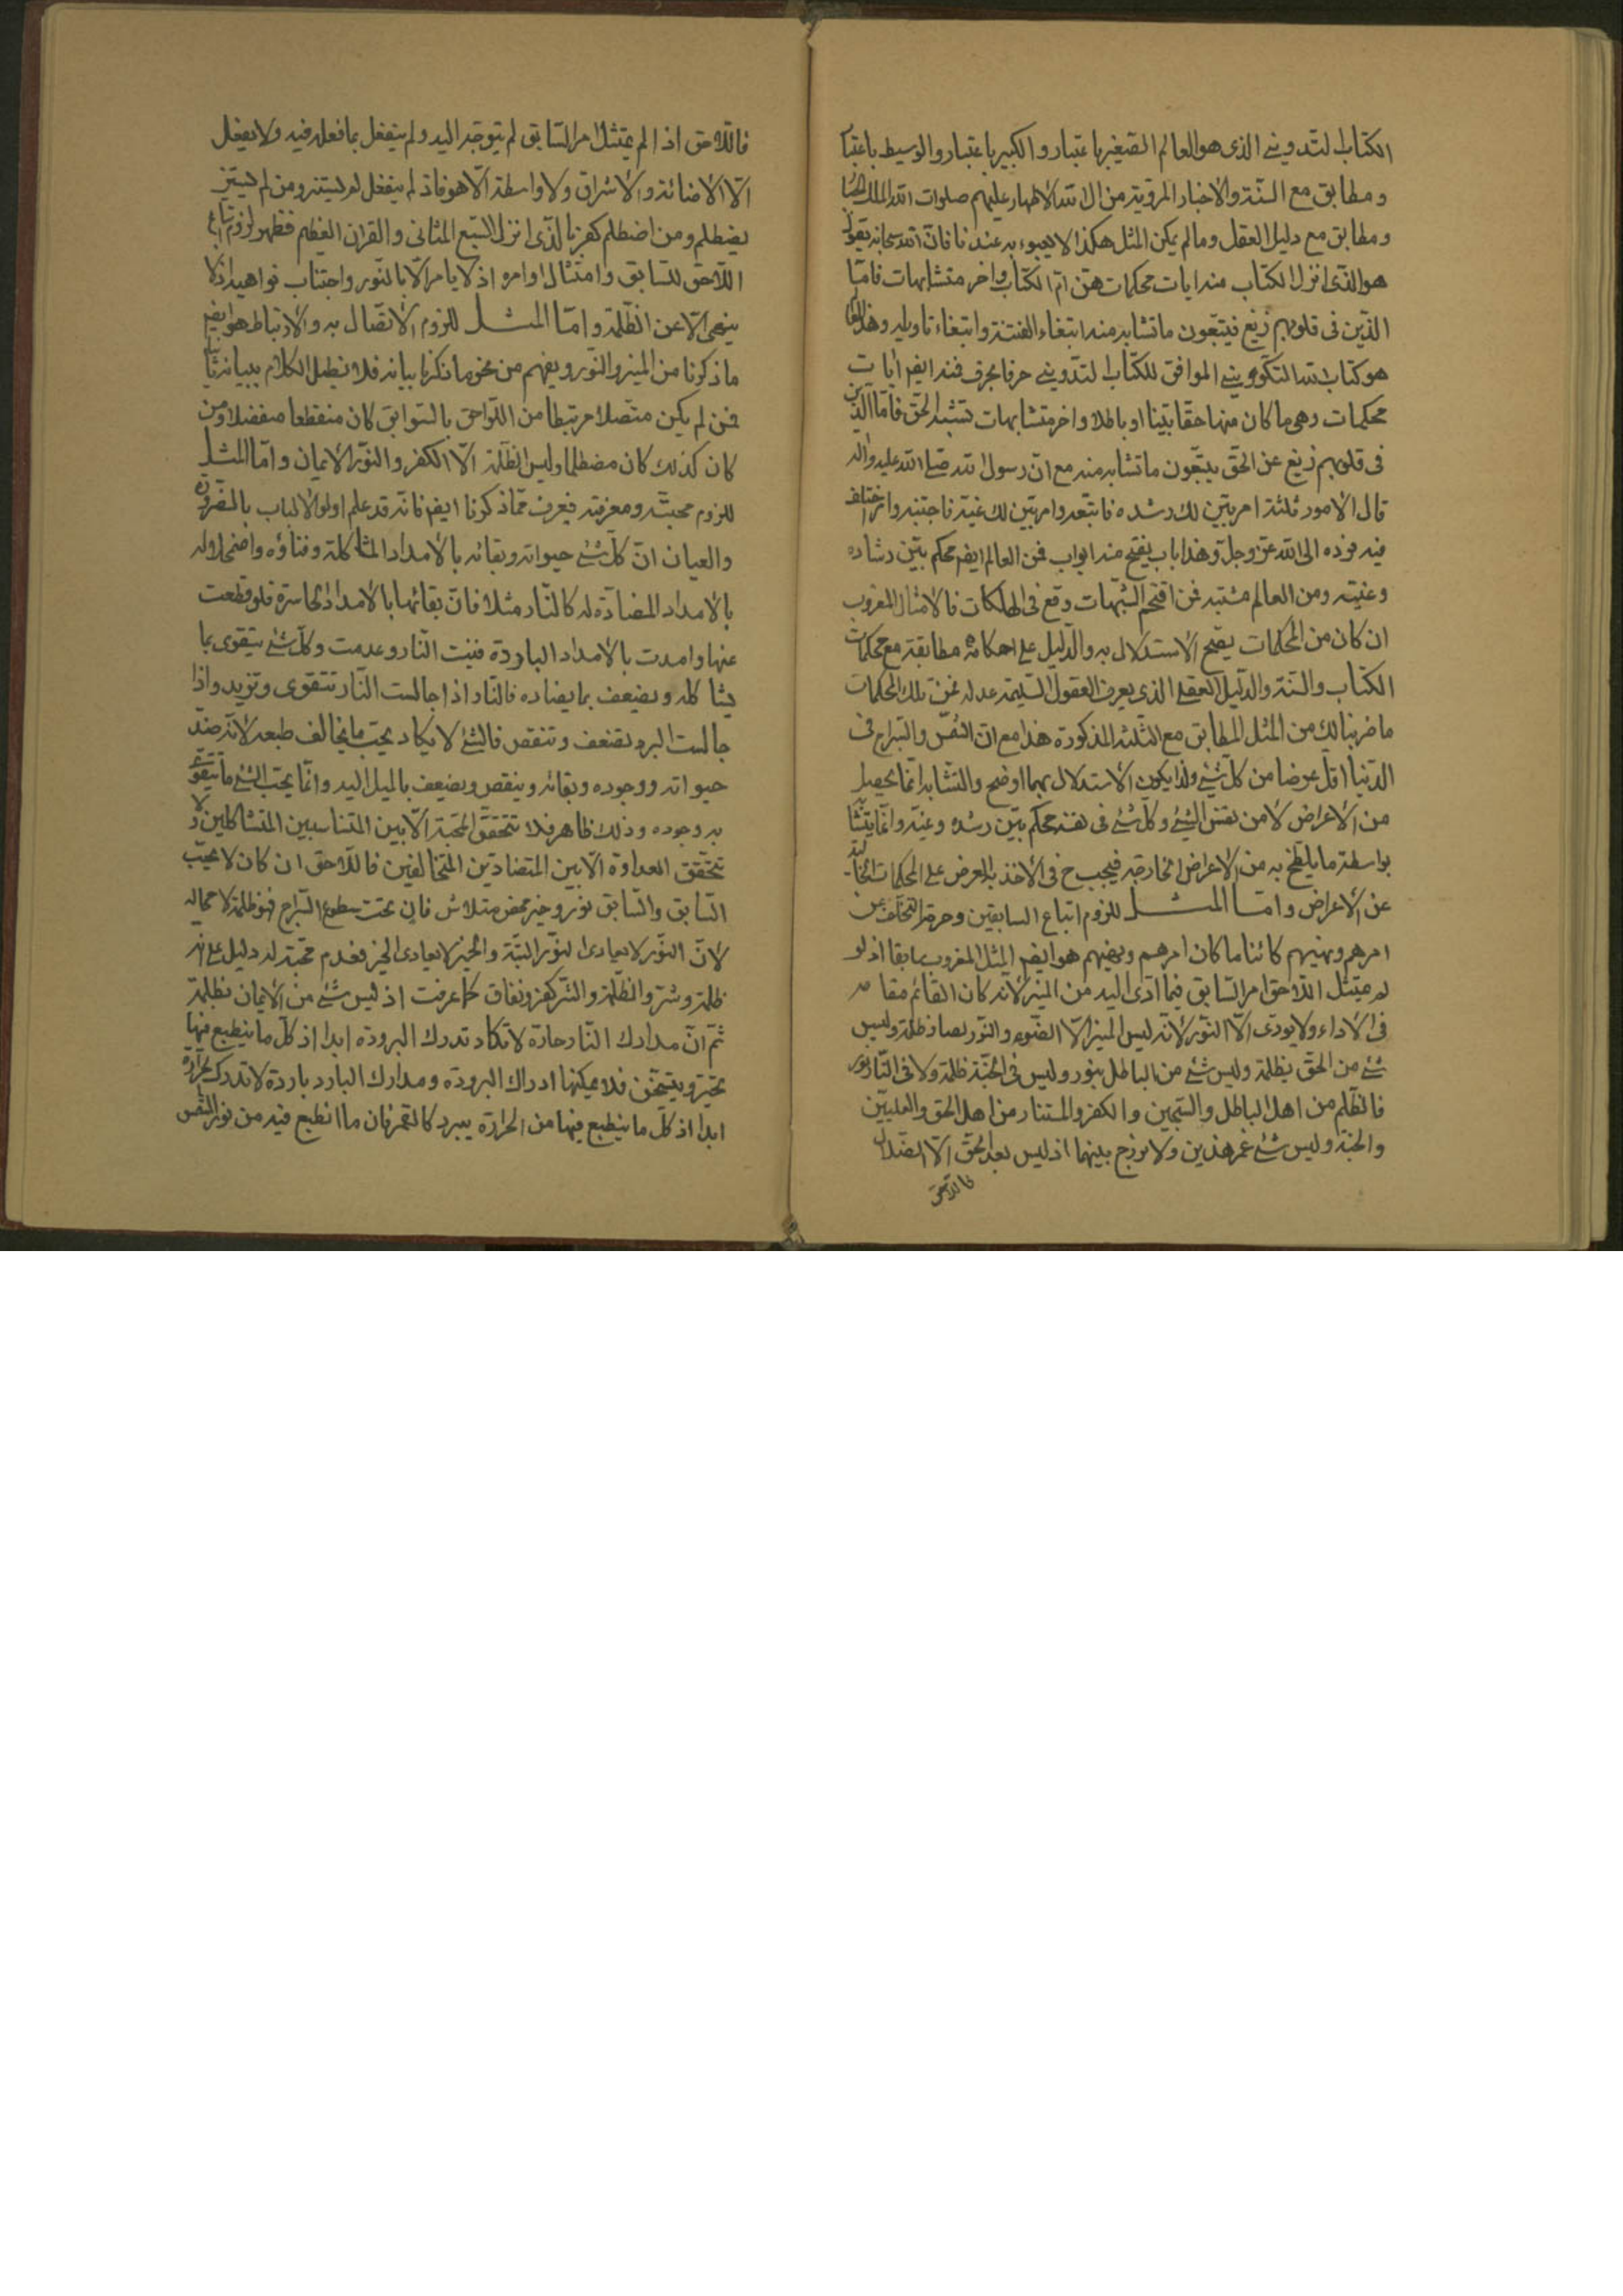 الكتاب التدويني الذي هو العالم الصغير باعتبار والكبير باعتبار والوسيط باعتبار
ومطابق مع السنة والاخبار المروية من الائمة الاطهار عليهم صلوات الله الملك
ومطابق مع دليل العقل وما لم يكن المثل هكذا لا يعبوء به عندنا فان الله سبحانه يقول
هو الذي انزل الكتاب منه ايات محكمات هن ام الكتاب واخر متشابهات فاما
الذين في قلوبهم زيغ فيتبعون ما تشابه منه ابتغاء الفتنة وابتغاء تاويله وهذا العالم
هو كتاب الله التكويني الموافق للكتاب التدويني حرفا بحرف فمنه ايضم ايات
محكمات وهي ما كان منها حقا بينا او باطلا واخر متشابهات تشبه الحق فاما الذين
في قلوبهم زيغ عن الحق يتبعون ما تشابه منه مع ان رسول الله صلى الله عليه واله
قال الامور ثلثة امر بين لك رشده فاتبعه وامر بين لك غيه فاجتنبه وامر اختلف
فيه فرده الى الله عز وجل وهذا باب يفتح منه ابواب فمن العالم ايضم محكم بين رشاده
وغيته ومن العالم مشتبه فمن اقتحم الشبهات وقع في الهلكات فالامثال المضروب
ان كان من المحكمات يصح الاستدلال به والدليل على احكامه مطابقة مع محكمات
الكتاب والسنة والدليل العقلي الذي يعرف العقول السليمة عدله فمن تلك المحكمات
ما ضربنا لك من المثل المطابق مع الثلثة المذكورة هذا مع ان الشمس والسراج في
الدنيا اقل عرضا من كل شئ ولذا يكون الاستدلال بهما اوضح والتشابه انما يحصل
من الاعراض لا من نفس الشئ وكل شئ في نفسه محكم بين رشده وغيه وانما يتشابه
بواسطة ما يلطخ به من الاعراض الخارجة فيجب ح في الاخذ به العرض على المحكمات الخالية
عن الاعراض واما المثل للزوم اتباع السابقين وحرمة التخلف عن
امرهم ونهيهم كائنا ما كان امرهم ونهيهم هو ايضم المثل المضروب سابقا اذ لو
لم يمتثل اللاحق امر السابق فيما ادى اليه من المنير لانه كان القائم مقامه
في الاداء ولا يودى الا النور لانه ليس المنير الا الضوء والنور بصا ظلمة وليس
شئ من الحق بظلمة وليس شئ من الباطل بنور وليس في الجنة ظلمة ولا في النار نور
فالظلم من اهل الباطل والسجين والكفر والمستنار من اهل الحق والعليين
والجنة وليس شئ غير هذين ولا برزخ بينهما اذ ليس بعد الحق الا الضلال
فاللاحق
فاللاحق اذا لم يمتثل امر السابق لم يتوجه اليه ولم ينفعل بما فعله فيه ولا يفعل
الا الاضائة والاشراق ولا واسطة الا هو فاذ لم ينفعل لم يستنر ومن لم يستنر
يضطلم ومن اضطلم كفر بالذي انزل السبع المثاني والقران العظيم فظهر لزوم اتباع
اللاحق للسابق وامتثال اوامره اذ لا يامر الا بالنور واجتناب نواهيه اذ لا
ينهى الا عن الظلمة واما المثل للزوم الاتصال به والارتباط هو ايضم
ما ذكرنا من المنير والنور ويفهم من نحو ما ذكرنا بيانه فلا نطيل الكلام ببيانه ثانيا
فمن لم يكن متصلا مرتبطا من اللواحق بالسوابق كان منقطعا منفصلا ومن
كان كذلك كان مضطلما وليس الظلمة الا الكفر والنور الا الايمان واما المثل
للزوم محبته ومعرفته فيعرف مما ذكرنا ايضم فانه قد علم اولوا الالباب بالضرورة
والعيان ان كل شئ حيوته وبقائه بالامداد المشاكلة وفناؤه واضمحلاله
بالامداد المضادة له كالنار مثلا فان بقائها بالامداد الحارة فلو قطعت
عنها وامدت بالامداد الباردة فنيت النار وعدمت وكل شئ يتقوى بما
يشاكله ويضعف بما يضاده فالنار اذا جالست النار تتقوى وتزيد واذا
جالست البرد تضعف وتنقص فالشئ لا يكاد يحب ما يخالف طبعه لانه ضد
حيوته ووجوده وبقائه وينقص ويضعف بالميل اليه وانما يحب الشئ ما يتقوى
به وجوده وذلك ظاهر فلا تتحقق المحبة الا بين المتناسبين المتشاكلين ولا
تتحقق العداوة الا بين المتضادين المتخالفين فاللاحق ان كان لا يحب
السابق والسابق نور وخير محض متلاش فان تحت سطوع السراج فهو ظلمة لا محالة
لان النور لا يعادى النور البتة والخير لا يعادى الخير فعدم محبته له دليل على انه
ظلمة وشر والظلمة والشر كفر ونفاق كما عرفت اذ ليس شئ من الايمان بظلمة
ثم ان مدارك النار حارة لا تكاد تدرك البرودة ابدا اذ كل ما ينطبع فيها
يحتر ويتسخن فلا يمكنها ادراك البرودة ومدارك البارد باردة لا تدرك الحرارة
ابدا اذ كل ما ينطبع فيها من الحرارة يبرد كالقمر فان ما انطبع فيه من نور الشمس